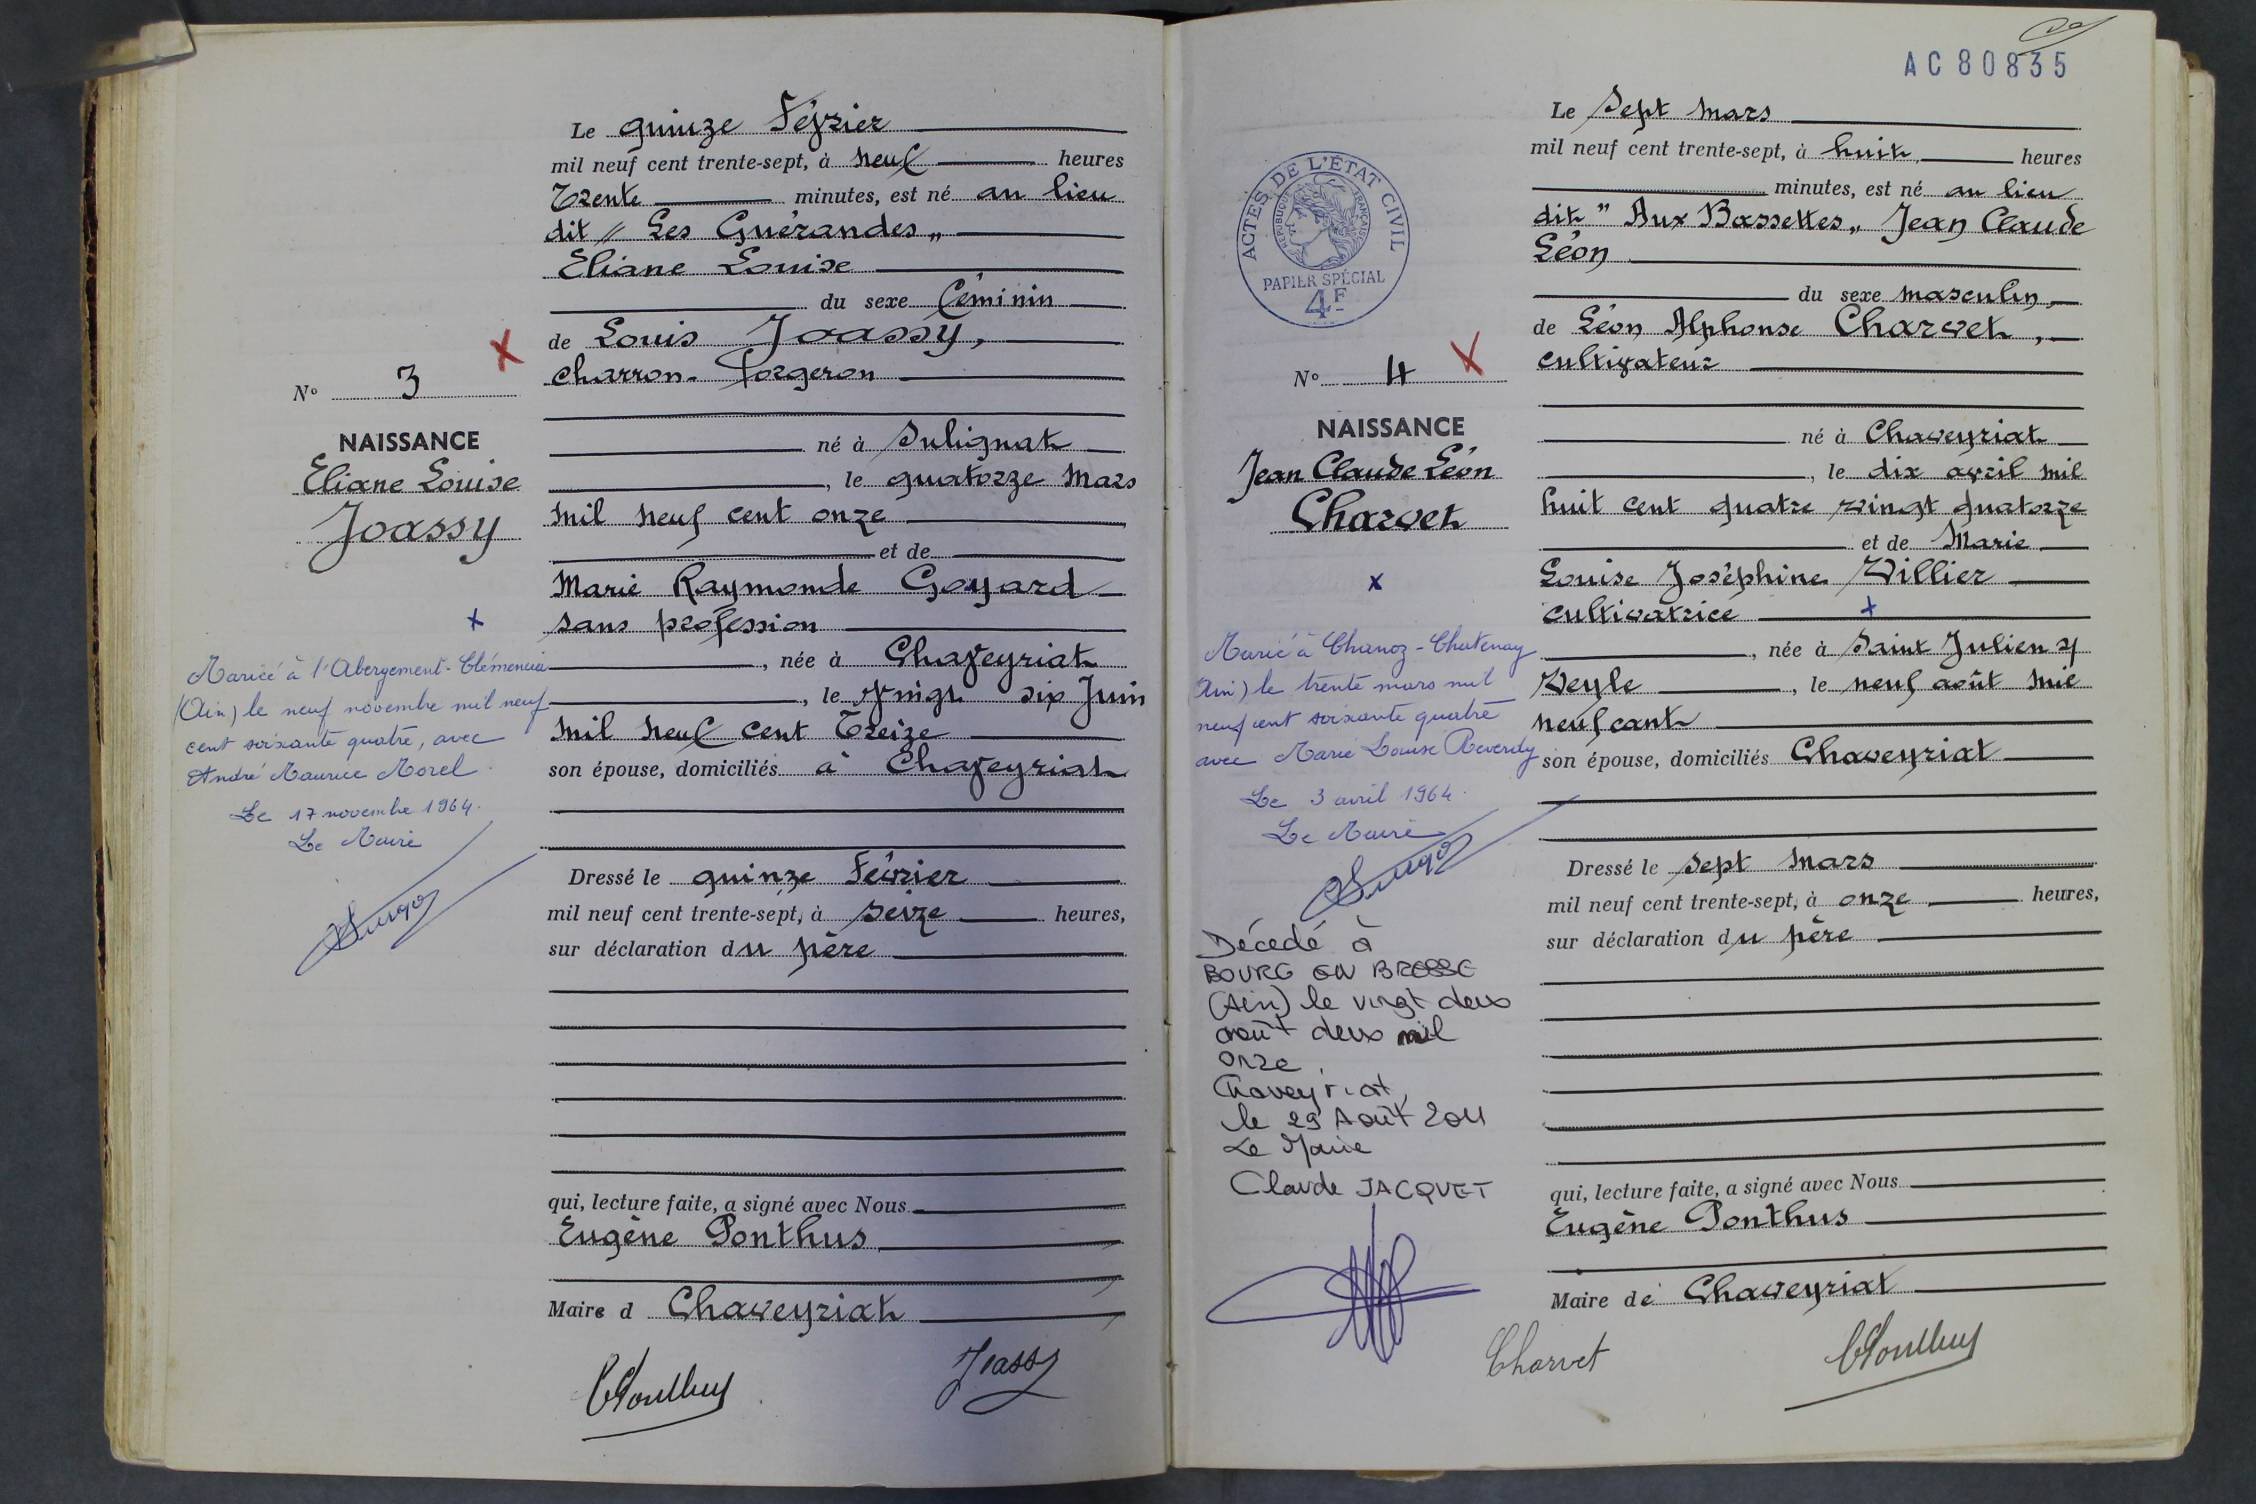 Le quinze Février
mil neuf cent trente-sept, à neuf heures
Trente minutes, est né au lieu
dit "Les Guérandes"
Eliane Louise
du sexe féminin
de Louis Joassy,
charron-forgeron
né à Sulignat
, le quatorze Mars
mil neuf cent onze
et de
Marie Raymonde Goyard
sans profession
, née à Chaveyriat
, le vingt six Juin
mil neuf cent Treize
son épouse, domiciliés à Chaveyriat
Dressé le quinze Février
mil neuf cent trente-sept, à seize heures,
sur déclaration du père
qui, lecture faite, a signé avec Nous
Eugène Ponthus
Maire d Chaveyriat
Joassy
No 3
NAISSANCE
Eliane Louise
Joassy
Mariée à l'Abergement-Clémenciat
(Ain) le neuf novembre mil neuf
cent soixante quatre, avec
André Maurice Morel
Le 17 novembre 1964.
Le Maire
AC80835
Le Sept Mars
mil neuf cent trente-sept, à huit heures
minutes, est né au lieu
dit "Aux Bassettes" Jean Claude
Léon
du sexe masculin
de Léon Alphonse Charvet,
cultivateur
né à Chaveyriat
, le dix avril mil
huit cent quatre vingt quatorze
et de Marie
Louise Joséphine Villier
cultivatrice
, née à Saint Julien s/
Veyle , le neuf août mil
neuf cent
son épouse, domiciliés Chaveyriat
Dressé le sept Mars
mil neuf cent trente-sept, à onze heures,
sur déclaration du père
qui, lecture faite, a signé avec Nous
Eugène Ponthus
Maire de Chaveyriat
Charvet
ACTES DE L'ÉTAT CIVIL
RÉPUBLIQUE FRANÇAISE
PAPIER SPÉCIAL
4F
No 4
NAISSANCE
Jean Claude Léon
Charvet
Marié à Chanoz-Chatenay
(Ain) le trente mars mil
neuf cent soixante quatre
avec Marie Louise Reverdy
Le 3 avril 1964.
Le Maire
Décédé à
BOURG EN BRESSE
(Ain) le vingt deux
août deux mil
onze
Chaveyriat,
le 29 Août 2011
Le Maire
Claude JACQUET